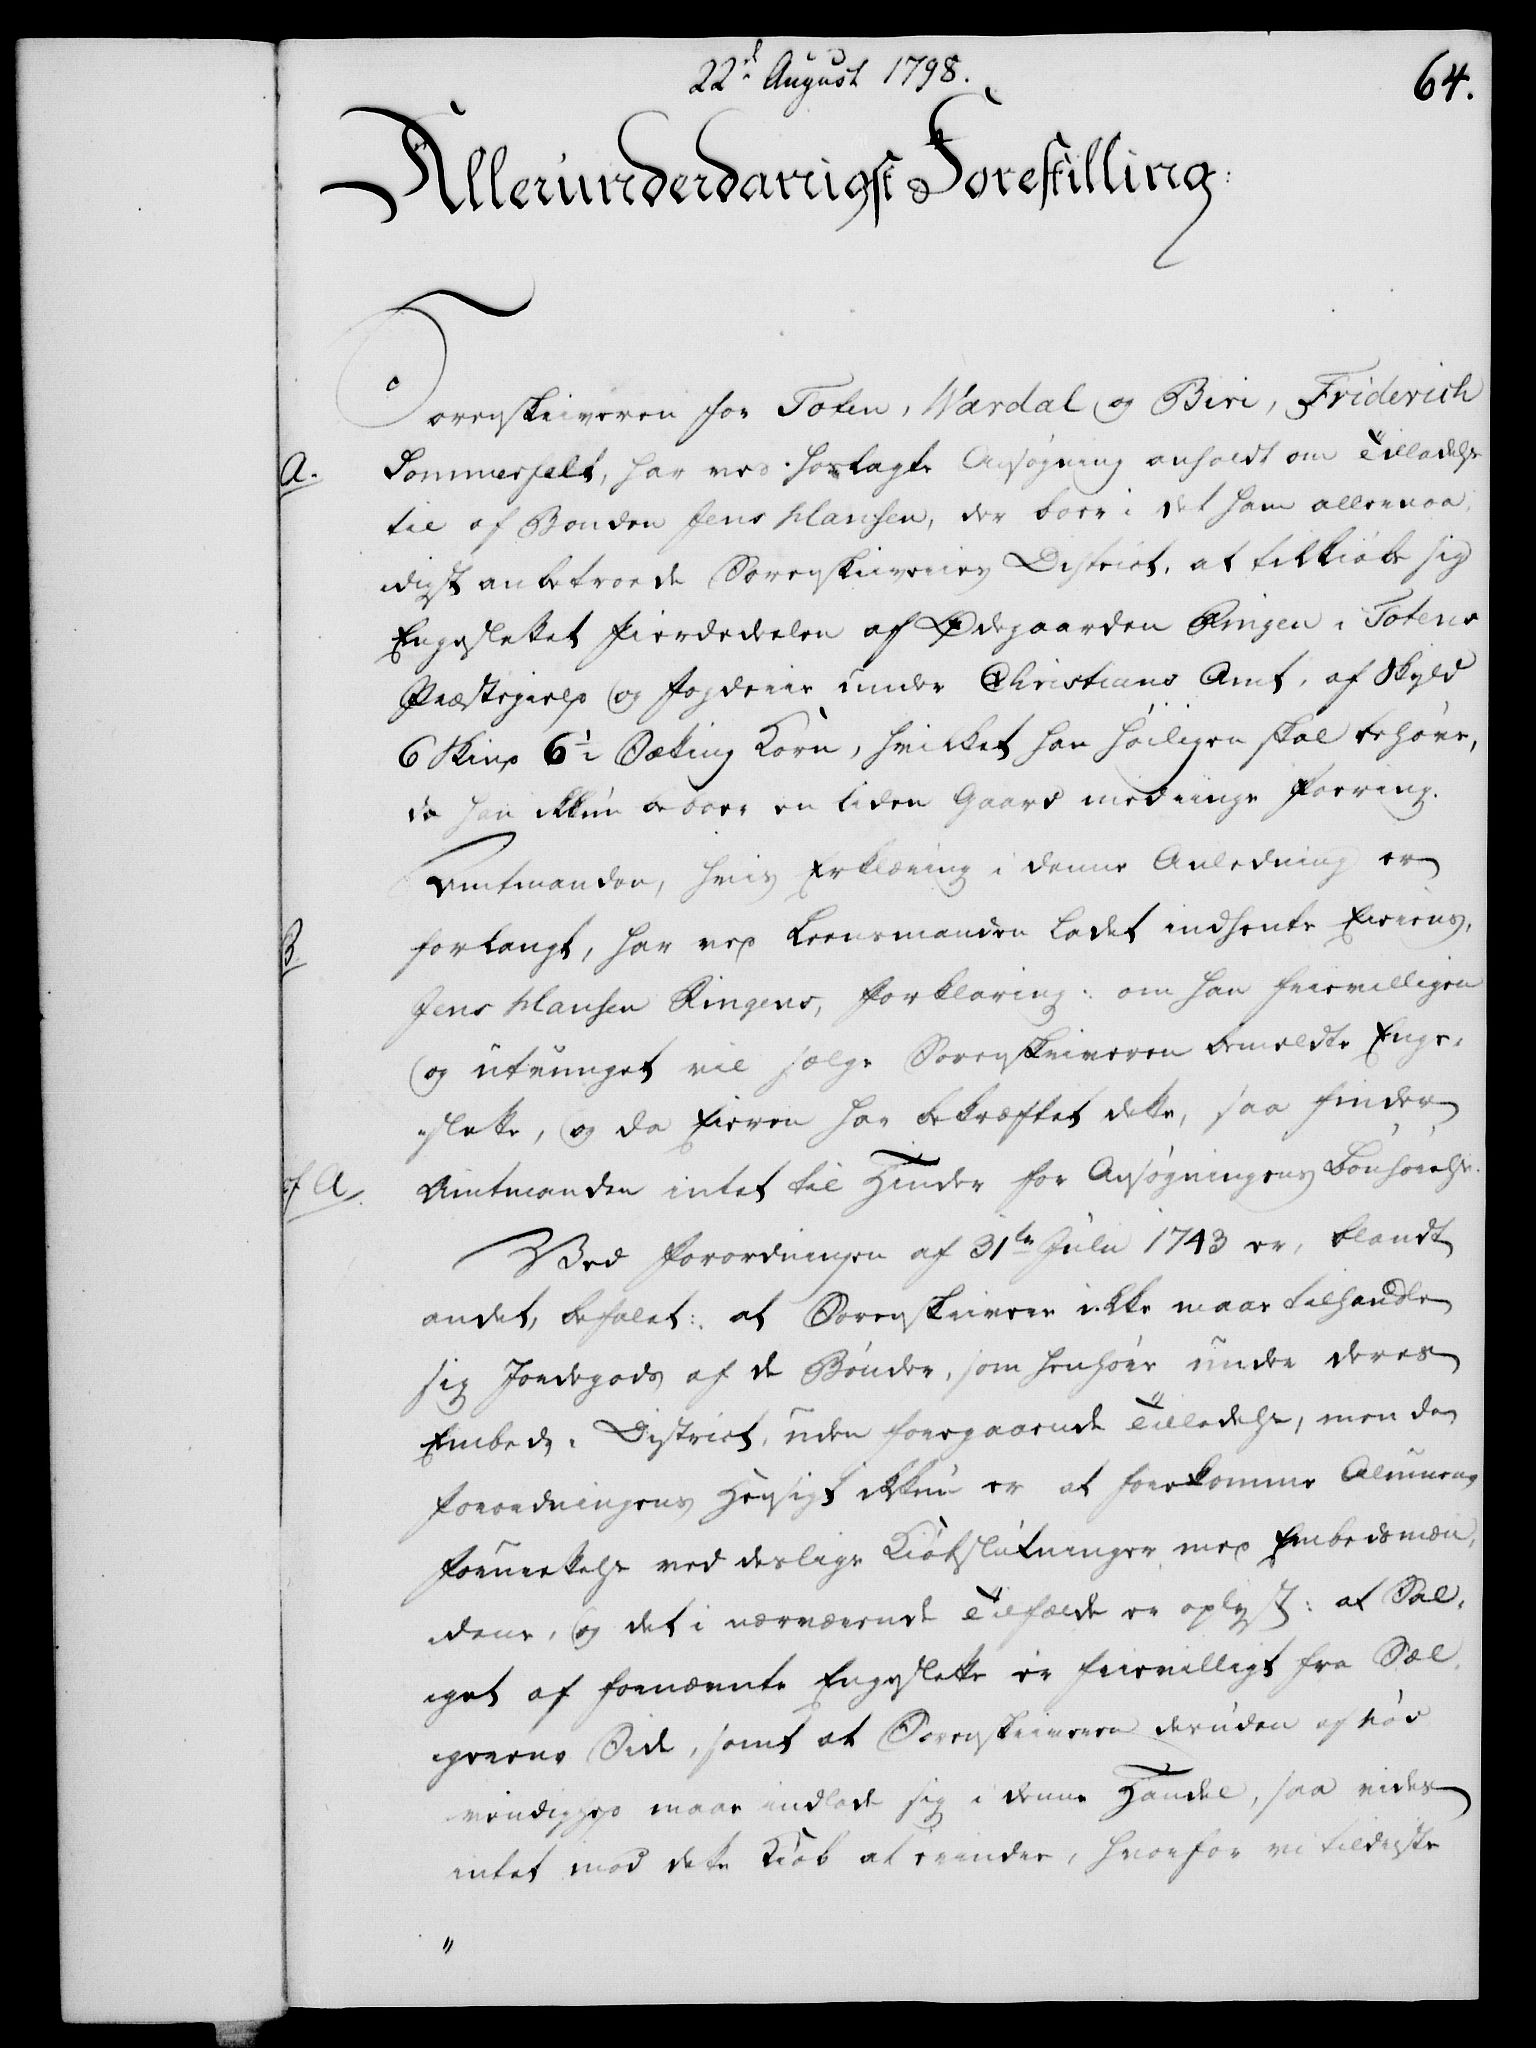 22d August 1798.
64.
Allerunderdanigst Forestilling:
Sorenskriveren for Toten, Wardal og Biri, Friderich
A.
Sommerfelt, har ved hoslagte Ansøgning anholdt om Tilladelse
til af Bonden Jens Hansen, der boer i det ham allernaa-
digst anbetroede Sorenskriveries District, at tilkiøbe sig
Engeslettet fierdedeelen af Ødegaarden Ringen i Totens
Præstegield og Fogderie under Christians Amt, af Skyld
6 Skind 6½ Sæting Korn, hvilket han høiligen skal behøve,
da han ikkun beboer en liden Gaard med ringe Foering.
Amtmanden, hvis Erklæring i denne Anledning er
B
forlangt, har ved Lensmanden ladet indhente Eierens,
Jens Hansen Ringens, Forklaring: om han frievilligen
og utvunget vil sælge Sorenskriveren bemeldte Enge-
slette, og da Eieren har bekræftet dette, saa finder
f A
Amtmanden intet til Hinder for Ansøgningens Bønhørelse.
Ved Forordningen af 31te Julii 1743 er, blandt
andet, befalet: at Sorenskrivere ikke maae tilhandle
sig Jordegods af de Bønder, som henhøre under deres
Embeds-District, uden foregaaende Tilladelse, men da
Forordningens Hensigt ikkun er at forekomme Almuens
Fornærmelse ved deslige Kiøbslutninger med Embedsmæn-
dene, og det i nærværende Tilfælde er oplyst: at Sal-
get af fornævnte Engeslette er frievilligt fra Sæl-
gerens Side, samt at Sorenskriveren desuden af Nød-
vendighed maae indlade sig i denne Handel, saa vides
intet mod dette Kiøb at erindre, hvorfor vi tildrister
"